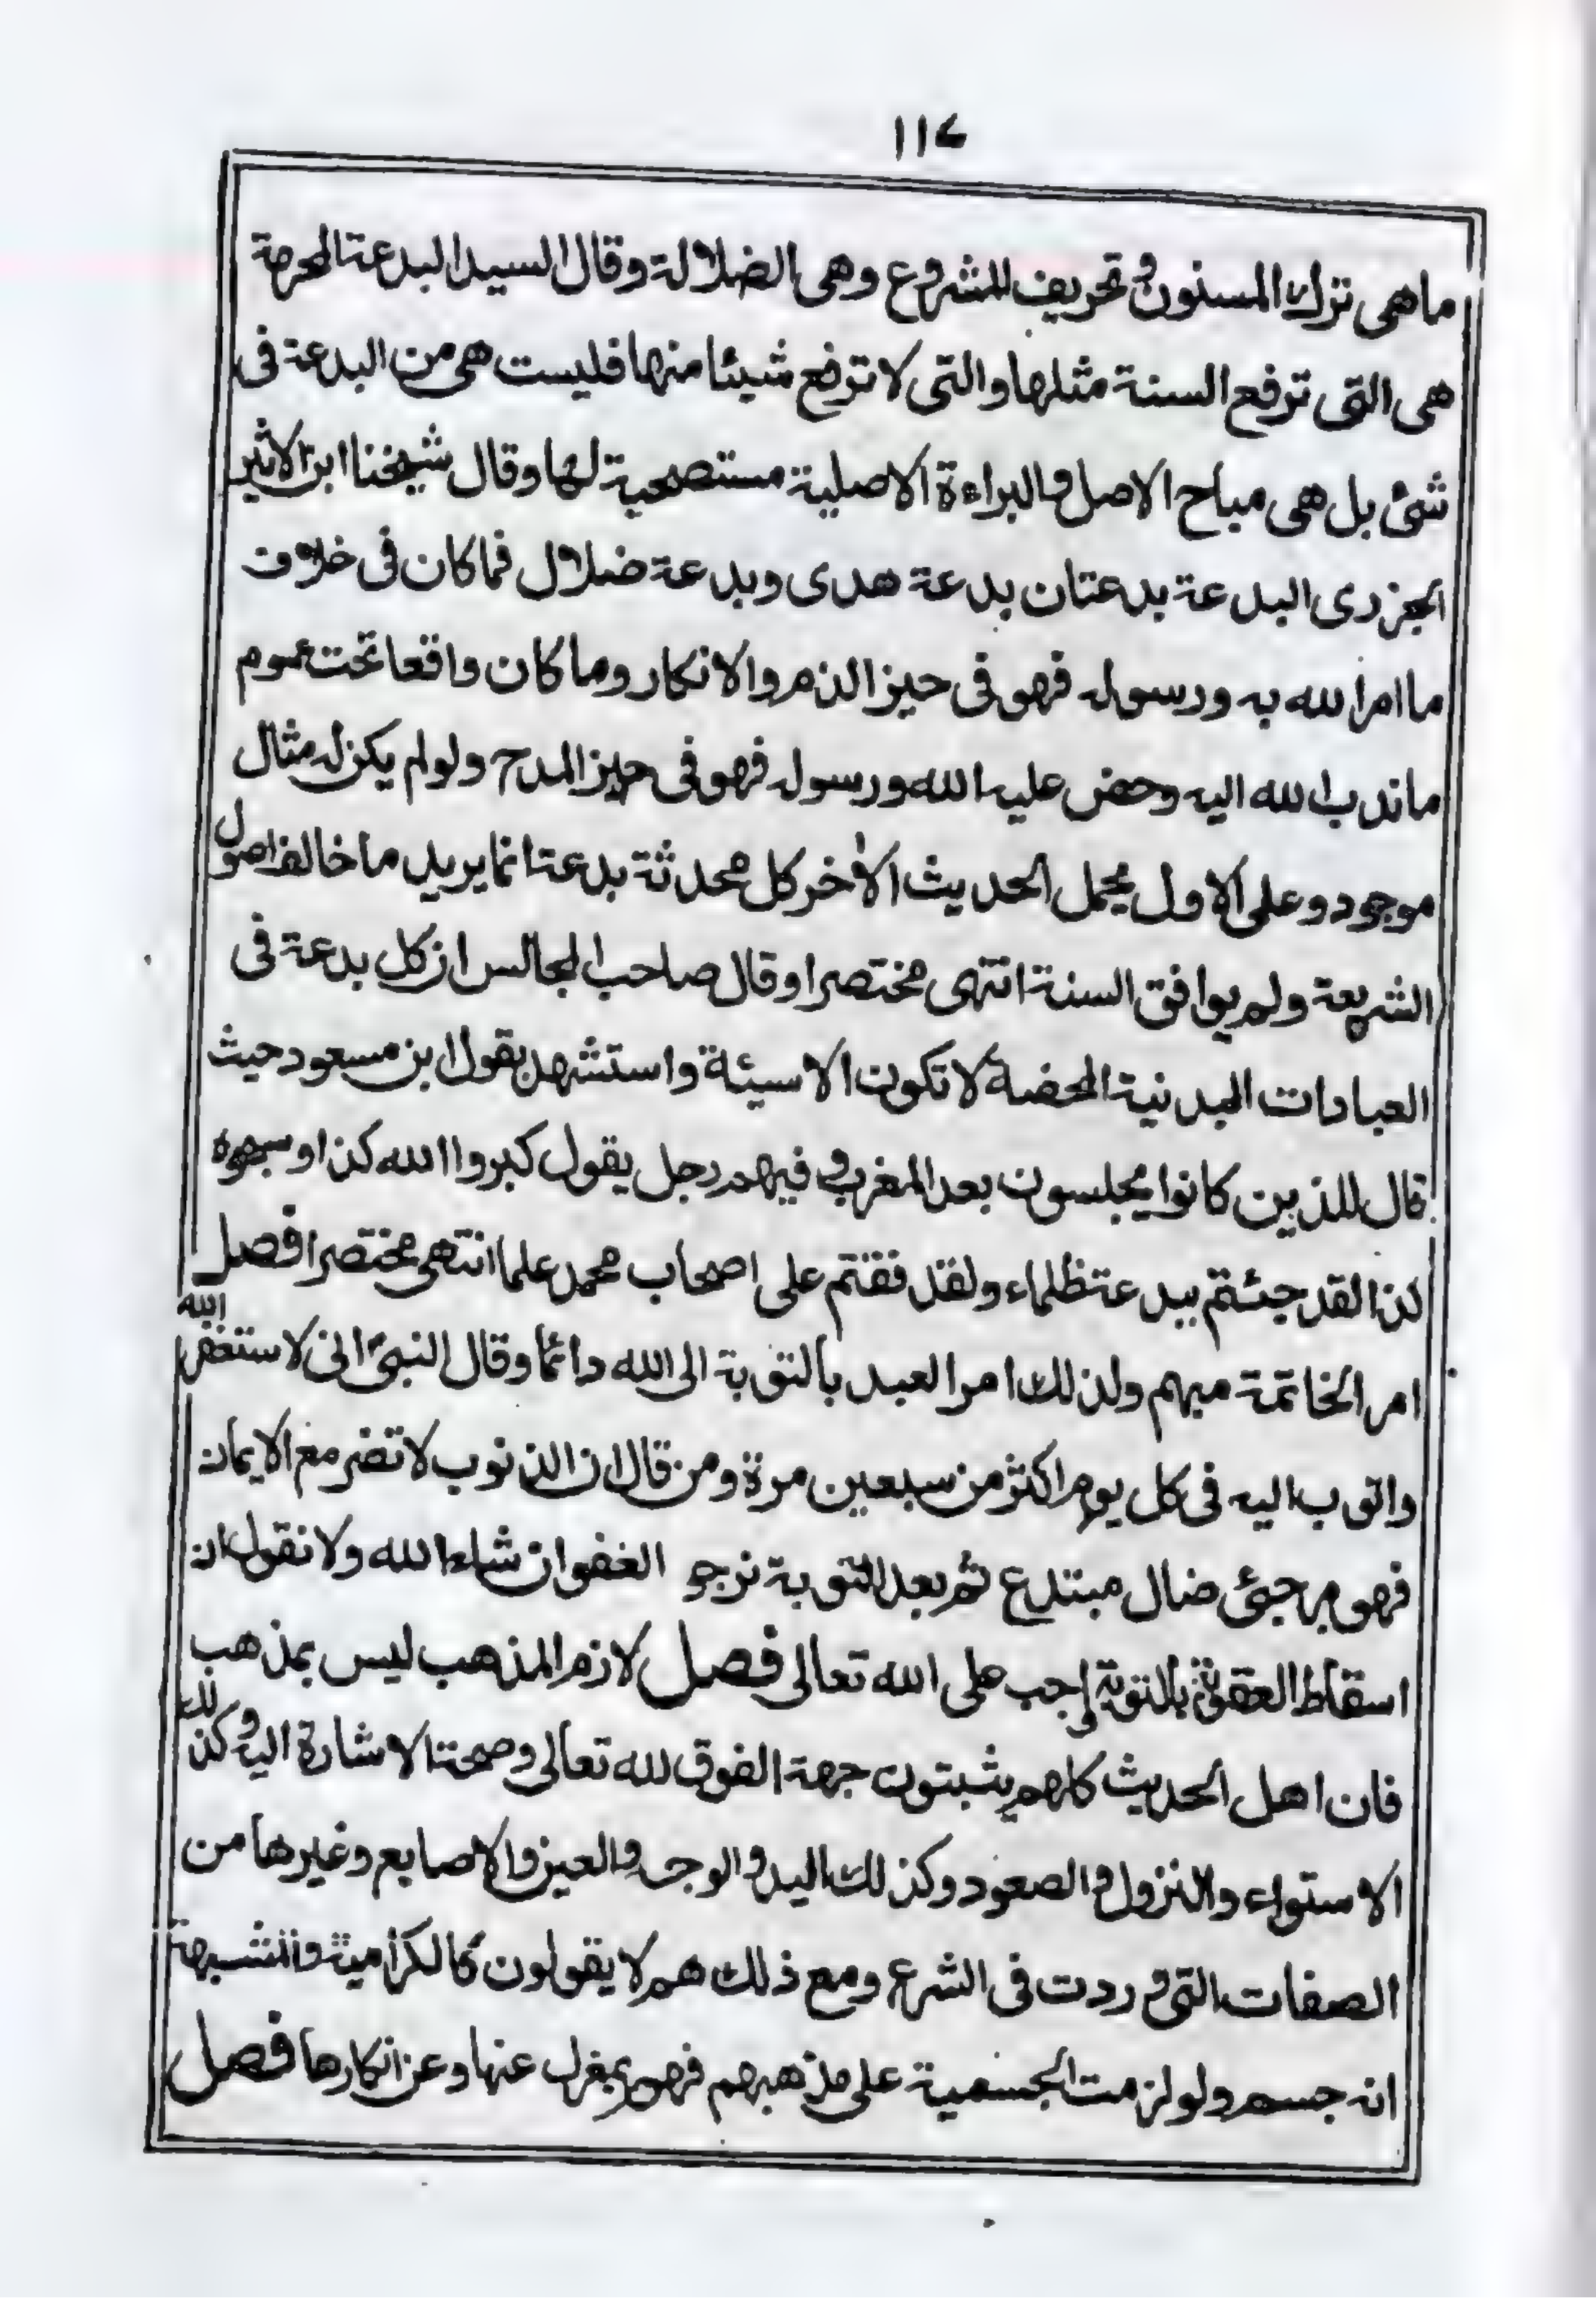 ١١٧
ماهى ترك المسنون وتحريف للمشروع وهى الضلالة وقال السيد البدعة المحرمة
هى التى ترفع السنة مثلها والتى لا ترفع شيئا منها فليست هى من البدعة فى
شئ بل هى مباح الاصل والبراءة الاصلية مستصحبة لها وقال شيخنا ابن الاثير
الجزرى البدعة بدعتان بدعة هدى وبدعة ضلال فما كان فى خلاف
ما امر الله به ورسوله فهو فى حيز الذم والانكار وما كان واقعا تحت عموم
ما ندب الله اليه وحض عليه الله ورسوله فهو فى حيز المدح ولو لم يكن له مثال
موجود وعلى الاول يحمل الحديث الأخر كل محدثة بدعة انما يريد ما خالف اصول
الشريعة ولم يوافق السنة انتهى مختصرا وقال صاحب المجالس ان كل بدعة فى
العبادات البدنية المحضة لا تكون الا سيئة واستشهد بقول ابن مسعود حيث
قال للذين كانوا يجلسون بعد المغرب وفيهم رجل يقول كبروا الله كذا وسبحوه
كذا لقد جئتم ببدعة ظلماء ولقد فقتم على اصحاب محمد علما انتهى مختصرا فصل
امر الخاتمة مبهم ولذلك امر العبد بالتوبة الى الله دائما وقال النبىؐ انى لاستغفر الله
واتوب اليه فى كل يوم اكثر من سبعين مرة ومن قال ان الذنوب لا تضر مع الايمان
فهو مرجئ ضال مبتدع ثم بعد التوبة نرجو العفو ان شاء الله ولا نقول ان
اسقاط العقوبة بالتوبة واجب على الله تعالى فصل لازم المذهب ليس بمذهب
فان اهل الحديث كلهم يثبتون جهة الفوق لله تعالى وصحة الاشارة اليه وكذلك
الاستواء والنزول والصعود وكذلك اليد والوجه والعين والاصابع وغيرها من
الصفات التى وردت فى الشرع ومع ذلك هم لا يقولون كالكرامية والمشبهة
انه جسم ولو لزمت الجسمية على مذهبهم فهم بمعزل عنها وعن انكارها فصل